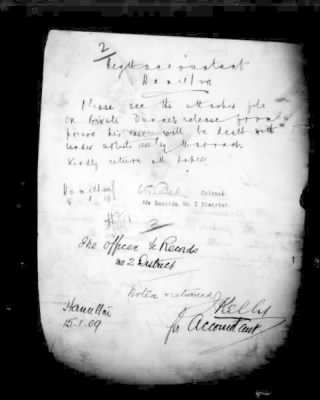 2
Regtl accountant
Hamilton
Please see the attached file
on Private Dunne's release from
prison his case will be dealt with
under
Kindly return all papers
Hamilton
8 1 19
Colonel
i/c Records No. 2 District
3
The Officer i/c Records
no 2 District
Noted & returned
Kelly
for Accountant
Hamilton
15.1.09